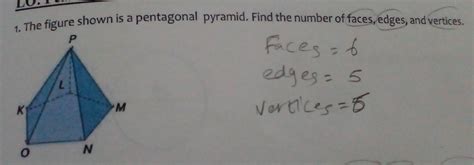 1. The figure shown is a pentagonal pyramid. Find the number of faces, edges, and vertices.
P
Faces = 6
edges = 5
L
vertices = 6
K
M
O
N